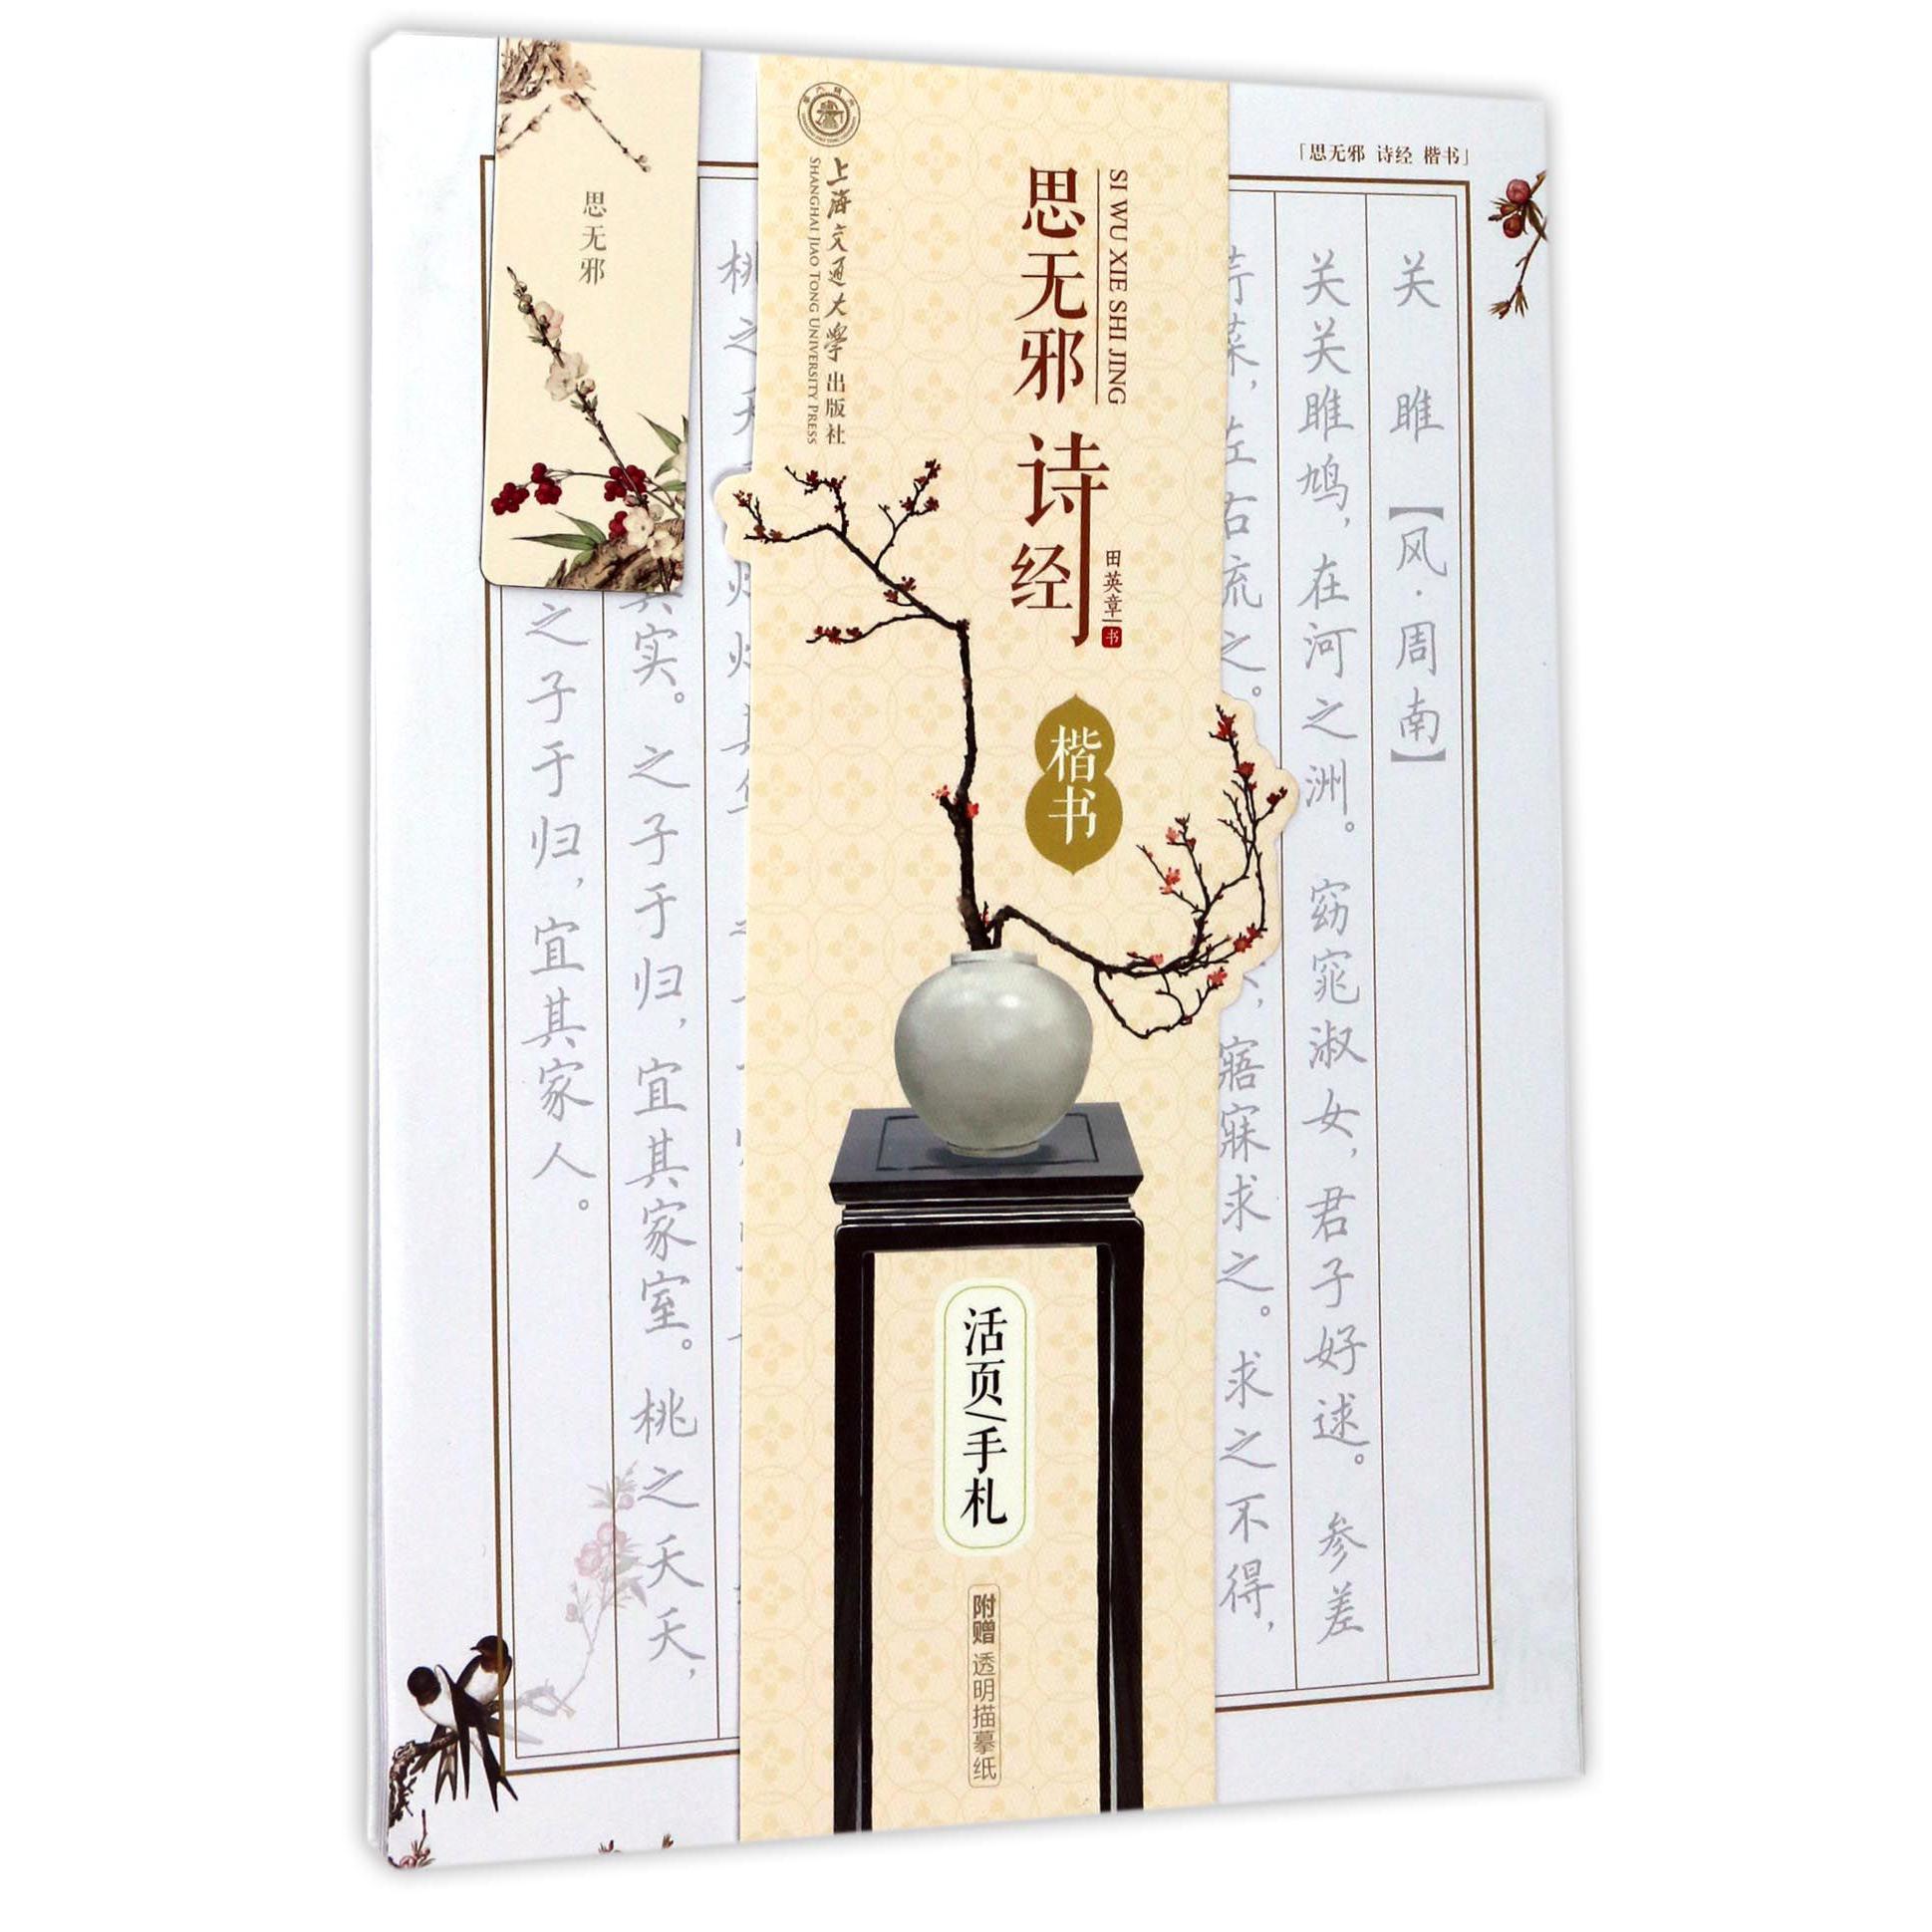 「思无邪 诗经 楷书」
关雎【风·周南】
关关雎鸠,在河之洲。窈窕淑女,君子好逑。参差
荇菜,左右流之。
,寤寐求之。求之不得,
SI WU XIE SHI JING
思无邪
诗经
田英章 书
楷书
上海交通大学出版社
SHANGHAI JIAO TONG UNIVERSITY PRESS
活页/手札
附赠 透明描摹纸
桃之夭
灼灼其华
其实。之子于归,宜其家室。桃之夭夭,
之子于归,宜其家人。
思无邪